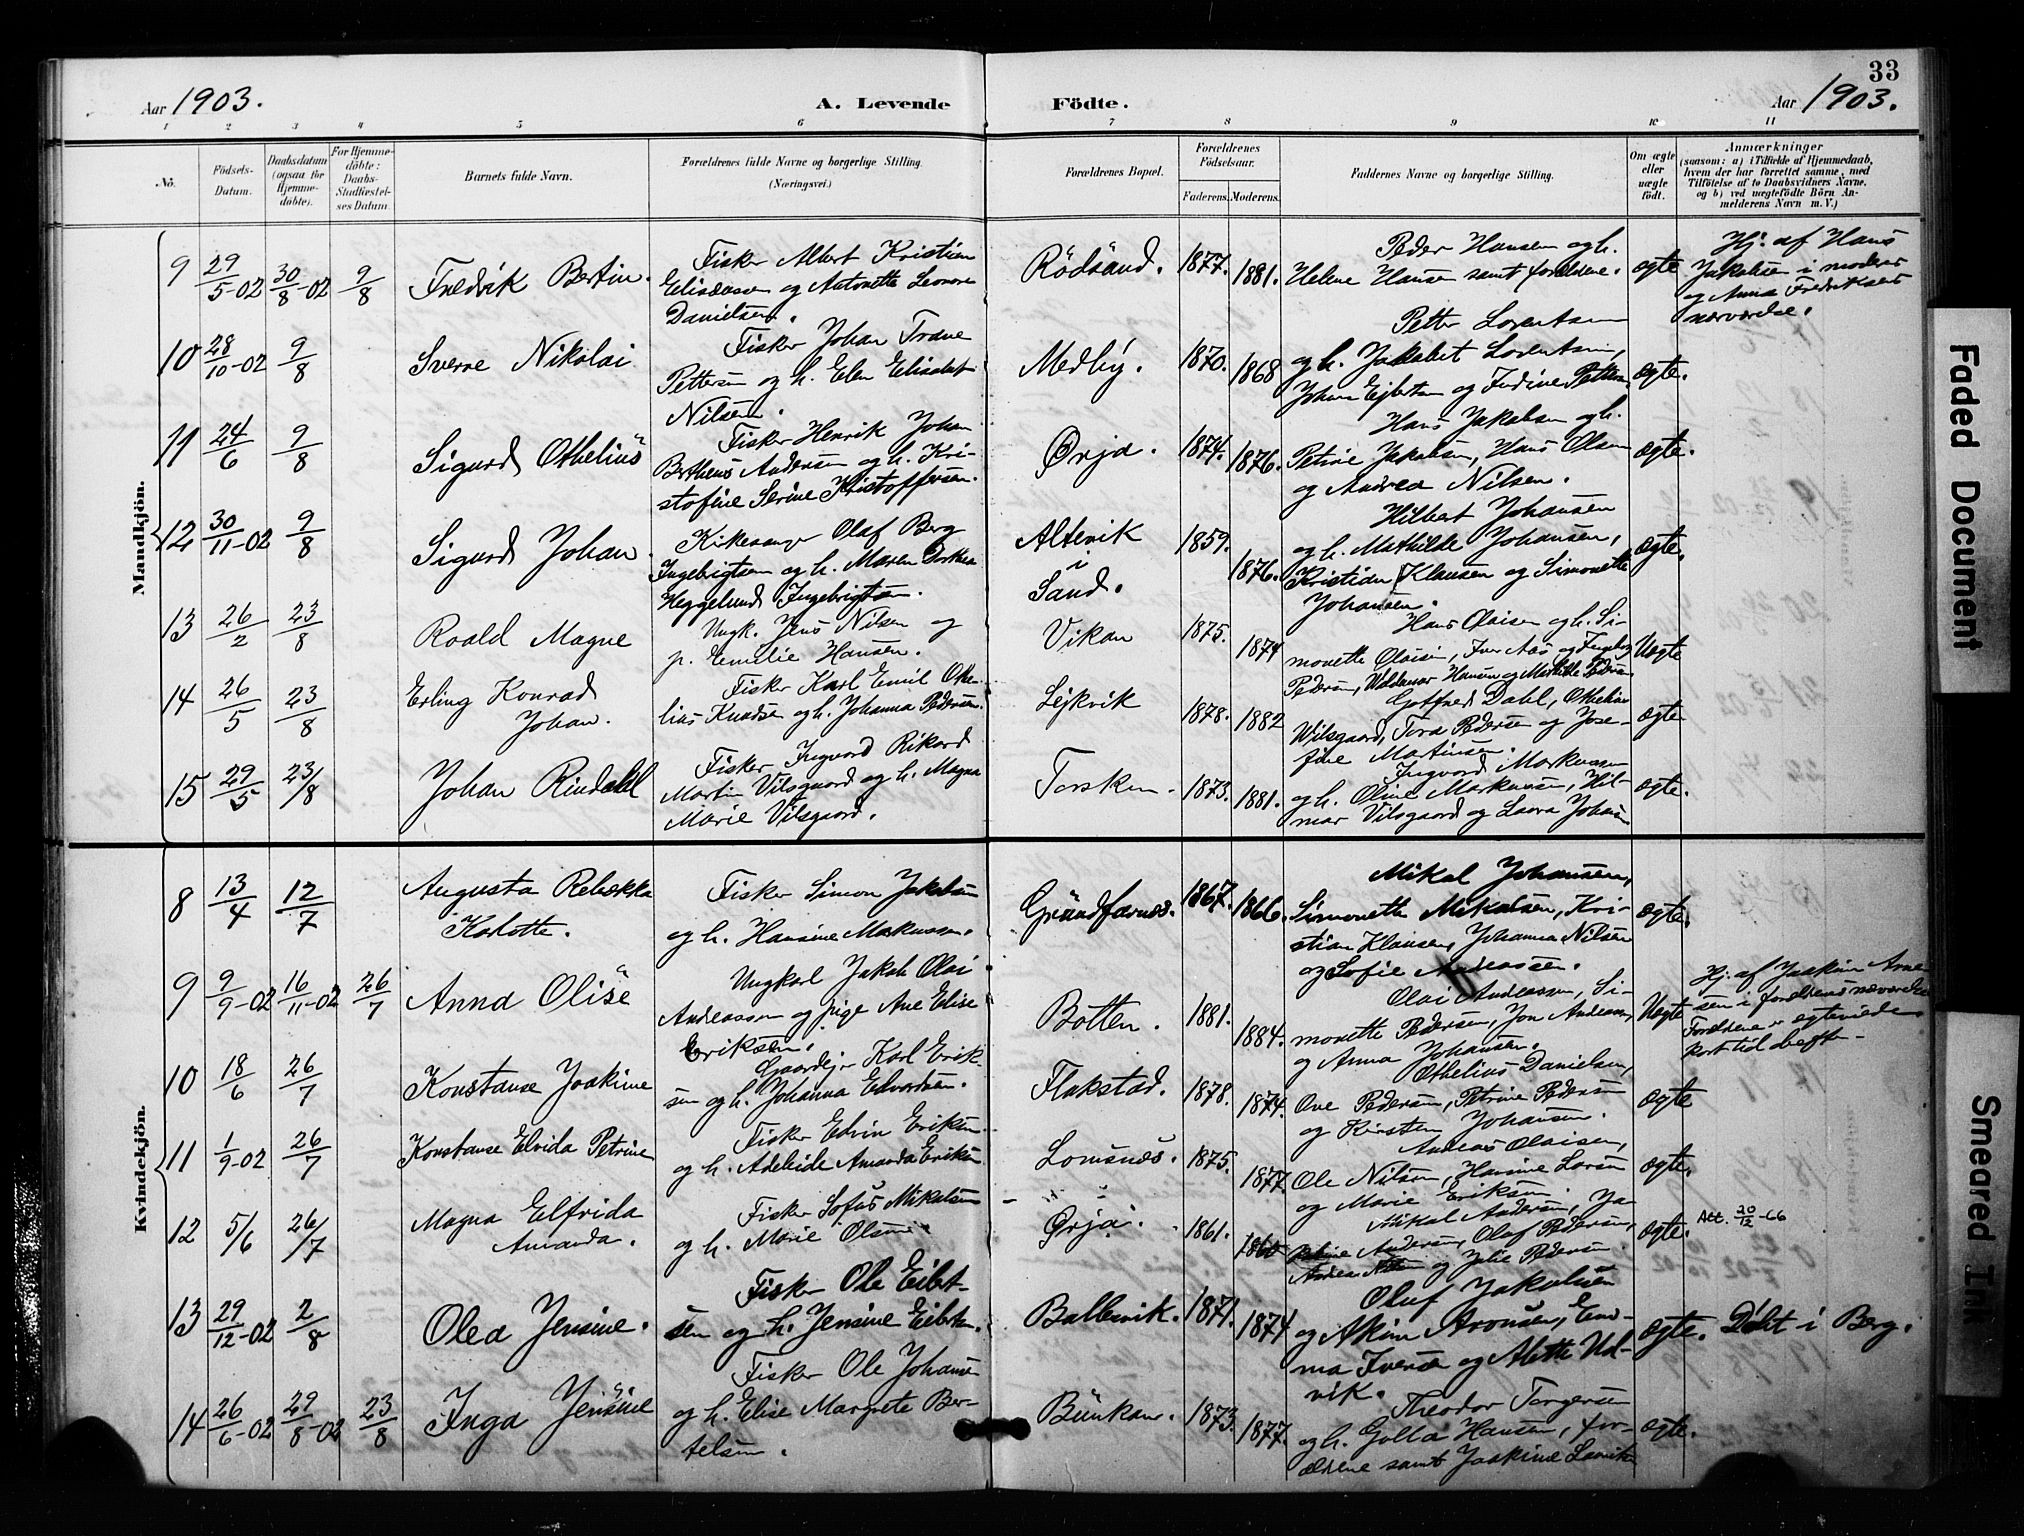 33
Aar 1903.
A. Levende Födte.
Aar 1903.
1 2 3 4 5 6 7 8 9 10 11
No.
Födsels-
Datum.
Daabsdatum
(ogsaa for
Hjemme-
döbte).
For Hjemme-
döbte:
Daabs-
Stadfæstel-
ses Datum.
Barnets fulde Navn.
Forældrenes fulde Navne og borgerlige Stilling.
(Næringsvei.)
Forældrenes Bopæl.
Forældrenes
Födselsaar.
Faderens. Moderens.
Faddernes Navne og borgerlige Stilling.
Om ægte
eller
uægte
födt.
Anmærkninger
(saasom: a) i Tilfælde af Hjemmedaab,
hvem der har forrettet samme, med
Tilföielse af to Daabsvidners Navne,
og b) ved uægtefödte Börn An-
melderens Navn m. V.)
Mandkjön.
9 29/5-02 30/8-02 9/8 Fredrik Bertin.
Fisker Albert Kristian
Eliseussen og Antonette Leonore
Danielsen.
Rödsand. 1877. 1881.
Peder Hansen og h.
Helene Hansen samt foreldrene.
ægte
Hj. af Hans
Jakobsen i moder
og Anna Fredriksens
nærværelse.
10 28/10-02 9/8 Sverre Nikolai
Fisker Johan Trane
Pettersen og h. Elen Elisabet
Nilsen.
Medby. 1870. 1868
Petter Lorentsen
og h. Jakobet Lorentsen,
Johan Ejbertsen og Indine Petters.
ægte.
11 24/6 9/8 Sigurd Othelius
Fisker Henrik Johan
Bertheus Andersen og h. Kri-
stofine Serine Kristoffersen.
Ørja. 1874. 1876.
Hans Jakobsen og h.
Petrine Jakobsen, Hans Olsen
og Andrea Nilsen.
ægte.
12 30/11-02 9/8 Sigurd Johan.
Kirkesanger Olaf Berg
Ingebrigtsen og h. Maren Dorthea
Heggelund Ingebrigtsen.
Altevik
i
Sand.
1859. 1876.
Hilbert Johansen
og h. Mathilde Johansen,
Kristian Klausen og Simonette
Johansen.
ægte.
13 26/2 23/8 Roald Magne
Ungk. Jens Nilsen og
p. Emilie Hansen.
Vikan 1875. 1874
Hans Olaisen og h. Si-
monette Olaisen, Iver Aas og Ingeborg
Pedersen, Waldemar Hansen og Mathilde Pedersen
Uægte
14 26/5 23/8 Erling Konrad
Johan.
Fisker Karl Emil Othe-
lius Knudsen og h. Johanna Pedersen.
Lejkvik 1878. 1882
Gotfred Dahl, Otheline
Wilsgaard, Tora Pedersen og Jose-
fine Martinsen.
ægte
15 29/5 23/8 Johan Rindahl
Fisker Ingvard Rikard
Martin Vilsgaard og h. Magna
Marie Vilsgaard.
Torsken. 1873. 1881.
Ingvard Markussen
og h. Oline Markussen, Hil-
mar Vilsgaard og Laura Johans
ægte.
Kvindekjön.
8 13/4 12/7 Augusta Rebekka
Karlotte.
Fisker Simon Jakobsen
og h. Hansine Markussen.
Grundfarnes. 1867. 1866.
Mikal Johansen,
Simonette Mikalsen, Kri-
stian Klausen, Johanna Nilsen
og Sofie Andreassen.
ægte.
9 9/9-02 16/11-02 26/7 Anna Olise
Ungkarl Jakob Olai
Andreassen og pige Ane Elise
Eriksen.
Botten. 1881. 1884.
Olai Andreassen, Si-
monette Pedersen, Jon Andreas,
og Anna Johansen.
Uægte
Hj. af Joakim Arne
sen i foreldrenes nærværelse
Foreldrene er egteviede
kort tid derefter
10 18/6 26/7 Konstanse Joakime
Gaardejer Karl Erik-
sen og h. Johanna Edvardsen.
Flakstad. 1878. 1874.
Othelius Danielsen,
Ove Pedersen, Petrine Pedersen
og Kirsten Johansen.
ægte
11 1/9-02 26/7 Konstanse Elvida Petrine
Fisker Edvin Eriksen
og h. Adeleide Amanda Eriksen
Lomsnes. 1875. 1877.
Andreas Olaisen,
Ole Nilsen, Hansine Larsen
og Marie Eriksen.
ægte.
12 5/6 26/7 Magna Elfrida
Amanda.
Fisker Sofus Mikalsen
og h. Marie Olsen.
Ørja. 1861. 1860
Mikal Andersen, Ja-
kobine Andersen, Oluf Pedersen,
Andrea Nilsen og Julie Pedersen.
ægte.
Att. 20/12-66
13 29/12-02 2/8 Olea Jensine.
Fisker Ole Eibert-
sen og h. Jensine Eibertsen.
Ballesvik. 1871. 1874
Oluf Jakobsen
og Akim Aronsen, Em-
ma Iversen og Alette Ud-
vik.
ægte. Döbt i Berg.
14 26/6-02 29/8-02 23/8 Inga Jensine
Fisker Ole Johansen
og h. Elise Margrete Ber-
telsen.
Bunkan. 1873. 1877.
Theodor Torgersen
og h. Golla Hansen, for-
eldrene samt Joakime
ægte.
Faded Document
Smeared Ink